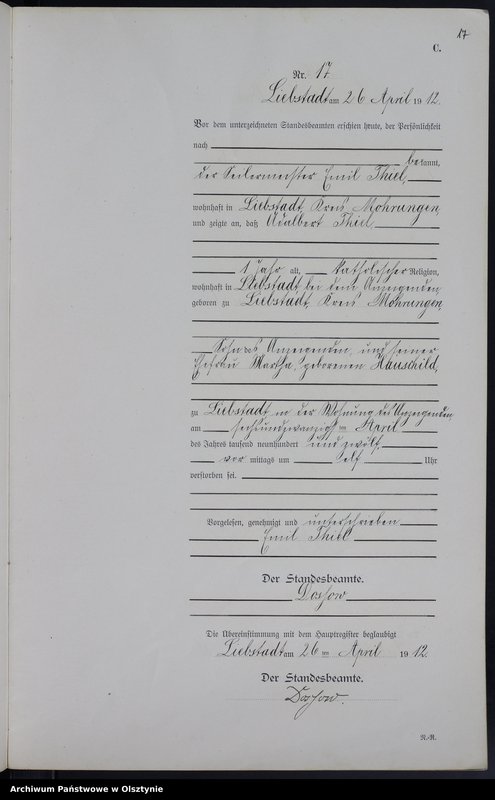 17
C.
Nr. 17
Liebstadt am 26 April 1912.
Vor dem unterzeichneten Standesbeamten erschien heute, der Persönlichkeit
nach
bekannt,
der Seilermeister Emil Thiel,
wohnhaft in Liebstadt, Kreis Mohrungen,
und zeigte an, daß Adalbert Thiel,
1 Jahr alt, katholischer Religion,
wohnhaft in Liebstadt, bei dem Anzeigenden
geboren zu Liebstadt, Kreis Mohrungen,
Sohn des Anzeigenden und seiner
Ehefrau Martha, geborenen Hauschild,
zu Liebstadt, in der Wohnung des Anzeigenden
am sechsundzwanzigsten April
des Jahres tausend neunhundert und zwölf
vor mittags um elf Uhr
verstorben sei.
Vorgelesen, genehmigt und unterschrieben
Emil Thiel
Der Standesbeamte.
Die Übereinstimmung mit dem Hauptregister beglaubigt
Liebstadt am 26 ten April 1912.
Der Standesbeamte.
N.-R.
Archiwum Państwowe w Olsztynie